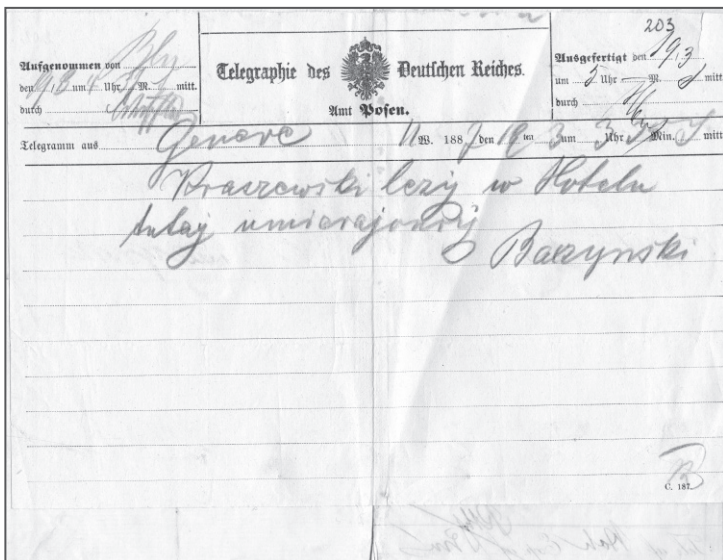 203
Aufgenommen von
den 19/3 um 4 Uhr M. mitt.
durch
Telegraphie des Deutschen Reiches.
Amt Posen.
Ausgefertigt den 19/3
um 5 Uhr — M. mitt
durch
Telegramm aus Geneve W. 1887 den 19 ten 3 um 3 Uhr Min. mitt
Kraszewski lezy w Hotelu
tutaj umierajoncy
Baczynski
C. 187.